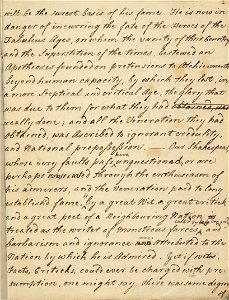 will be the surest Basis of his fame. He is now in
danger of incurring the fate of the Heroes of the
Fabulous Ages, on whom the vanity of their Country
and the Superstition of the times, bestowed an
Apotheosis founded on pretensions to Atchievments
beyond human capacity, by which they lost, in
a more sceptical and critical Age, the glory that
was due to them for what they had
really done; and all the Veneration they had
obtained, was ascribed to ignorant credulity,
and National prepossession. Our Shakespear,
whose very faults pass here unquestioned, or are
perhaps through the enthusiasm of
his admirers, and the veneration paid to long
established fame, by a great Wit, a great critick
and a great poet of a Neighbouring Nation is
treated as the writer of monstrous farces, and
barbarism and ignorance are attributed to the
Nation by which he is Admired. Yet if wits,
Poets, Criticks, could ever be charged with pre-
sumption, one might say there was some degree
of